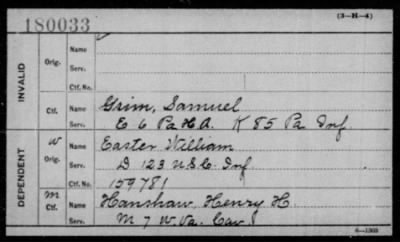 180033
(3-H-4)
INVALID
Orig.
Name
Serv.
Ctf. No.
Ctf.
Name Grim, Samuel
Serv. E 6 Pa H.A. K 85 Pa Inf.
DEPENDENT
W
Orig.
Name Easter William
Serv. D 123 U.S.C. Inf.
Ctf. No. 159781
Ctf.
Name Hanshaw, Henry H.
Serv. M 7 W. Va. Cav.
6-1303